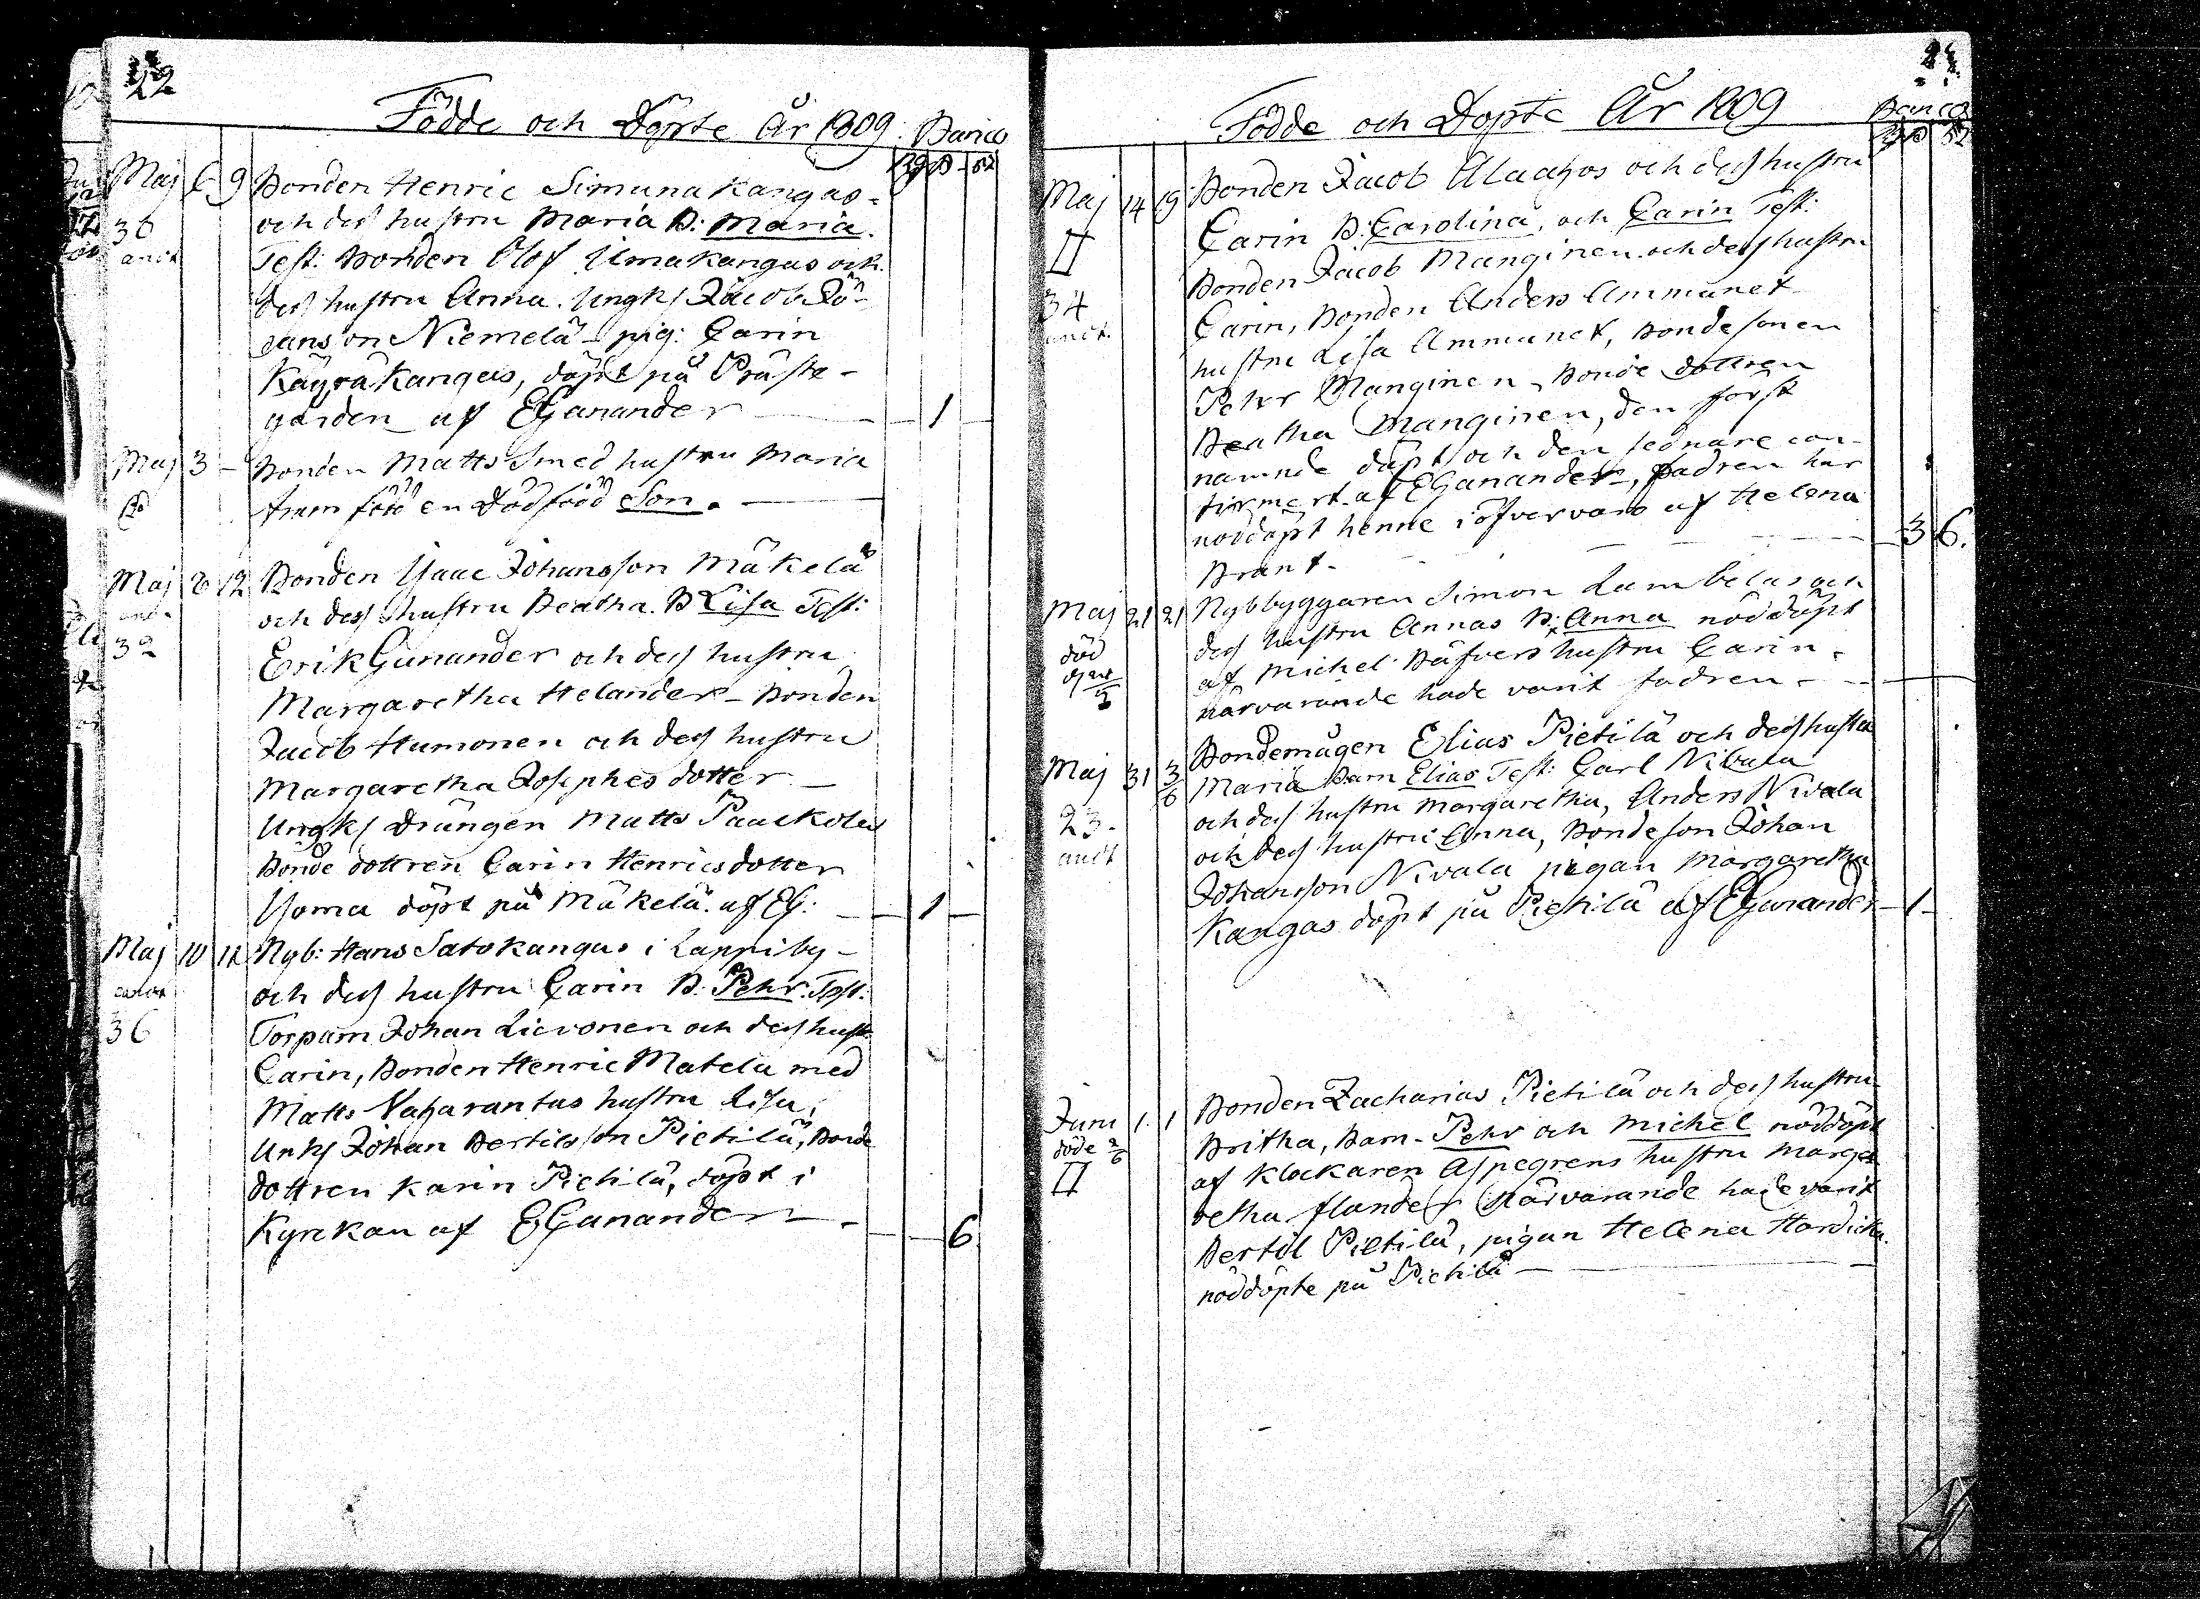 22
Födde och Döpte År 1809. Banco
Maj 6 9 Bonden Henric Simunakangas
36 och dess hustru Maria B: Maria.
Test: Bonden Olof Simakangas och
dess hustru Anna. Ungk: Jacob Jö-
ransson Niemelä pig: Carin
Käyräkangas, döpt på Präste-
gården af EGanander 1
Maj 3 - Bonden Matts Smed hustru Maria
fram född en Dödfödd Son.
Maj 8 12 Bonden Isaac Johansson Mäkelä
och dess hustru Beatha. B Lisa Test:
32
Erik Ganander och dess hustru
Margaretha Helander - Bonden
Jacob Humonen och dess hustru
Margaretha Josephes dotter
Ungk: Drängen Matts
Bonde dottren Carin Henricsdotter
döpt på Mäkelä af EG: 1
Maj 10 12 Nyb: Hans Satokangas i Lappiby
och dess hustru Carin B: Pehr. Test:
36 Torpam Johan Lievonen och dess hust:
Carin, Bonden Henric Matela med
Matts Vaharantas hustru Lisa,
Unk: Johan Bertilsson Pietilä, Bonde
dottren Karin Pietilä, döpt i
Kyrckan af EGanander 6
Födde och Döpte År 1809 Banco
Maj 14 19 Bonden Jacob Alaahos och dess hustru
Carin B: Carolina, och Carin Test:
Bonden Jacob Manginen och dess hustru
34 Carin, Bonden Anders Ammunet
hustru Lisa Ammunet, Bondesonen
Pehr Manginen, Bonde dottren
Beatha Manginen, den först
namnde döpt och den sednare con-
firmert af EGanander, fadren har
nöddöpt henne i öfvervaro af Helena
Brant. 3 6.
Maj 21 21 Nybbyggaren Simon Lambela och
död dess hustru Annas B: Anna nöddöpt
af Michel Bäfvers hustru Carin,
närvarande hade varit fadren.
Bondemågen Elias Pietilä och dess hustru
Maj 31 3/6 Maria Barn Elias Test: Carl Nivala
23. och dess hustru Margaretha, Anders Nivala
och dess hustru Anna, Bondeson Johan
Johansson Nivala pigan Margaretha
Kangas döpt på Pietilä af EGanander 1
Juni 1. 1 Bonden Zacharias Pietilä och dess hustru
döde 2/6 Britha, Barn - Pehr och Michel nöddöpt
af Klockaren Aspegrens hustru Marga
retha närvarande hade varit
Bertil Pietilä, pigan Helena
nöddöpte på Pietilä